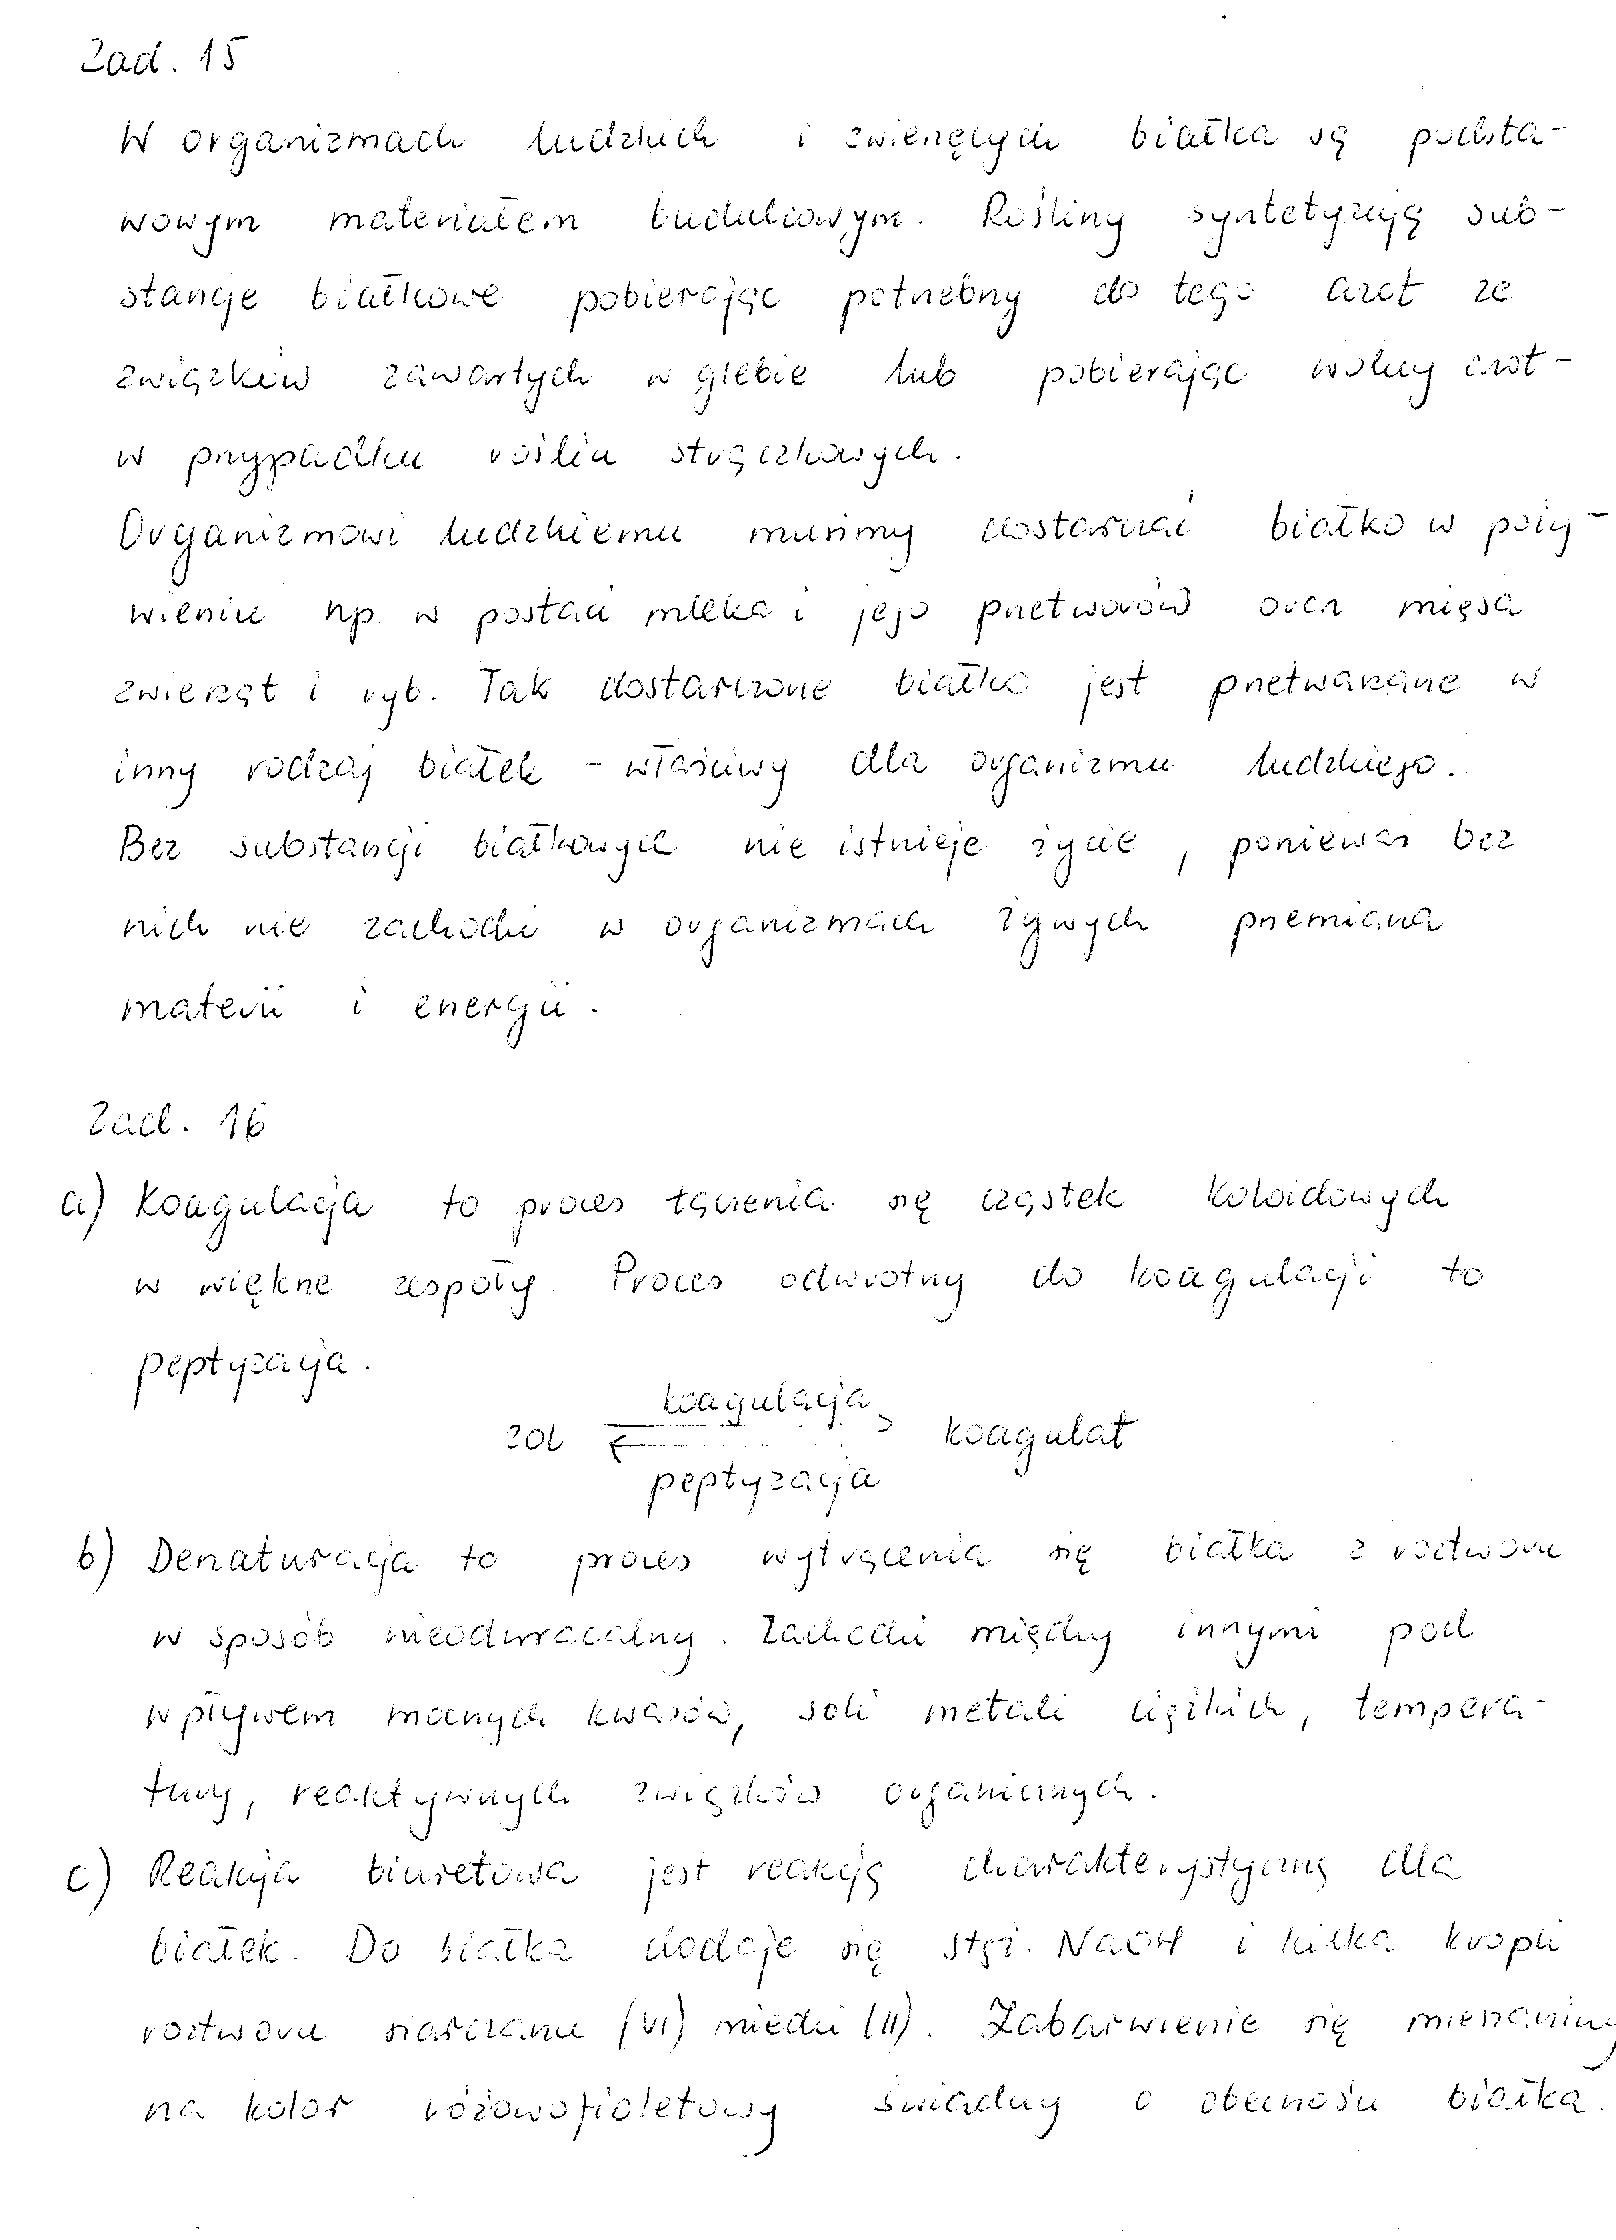 Zad. 15
W organizmach ludzkich i zwierzęcych białka są podsta-
wowym materiałem budulcowym. Rośliny syntetyzują sub-
stancje białkowe pobierając potrzebny do tego azot ze
związków zawartych w glebie lub pobierając wolny azot -
w przypadku roślin strączkowych.
Organizmowi ludzkiemu musimy dostarczać białko w poży-
wieniu np. w postaci mleka i jego przetworów oraz mięsa
zwierząt i ryb. Tak dostarczone białko jest przetwarzane w
inny rodzaj białek - właściwy dla organizmu ludzkiego.
Bez substancji białkowych nie istnieje życie, ponieważ bez
nich nie zachodzi w organizmach żywych przemiana
materii i energii.
Zad. 16
a) Koagulacja to proces łączenia się cząstek koloidowych
w większe zespoły. Proces odwrotny do koagulacji to
peptyzacja.
koagulacja
zol ⇄ koagulat
peptyzacja
b) Denaturacja to proces wytrącenia się białka z roztworu
w sposób nieodwracalny. Zachodzi między innymi pod
wpływem mocnych kwasów, soli metali ciężkich, tempera-
tury, reaktywnych związków organicznych.
c) Reakcja biuretowa jest reakcją charakterystyczną dla
białek. Do białka dodaje się stęż. NaOH i kilka kropli
roztworu siarczanu (VI) miedzi (II). Zabarwienie się mieszaniny
na kolor różowofioletowy świadczy o obecności białka.